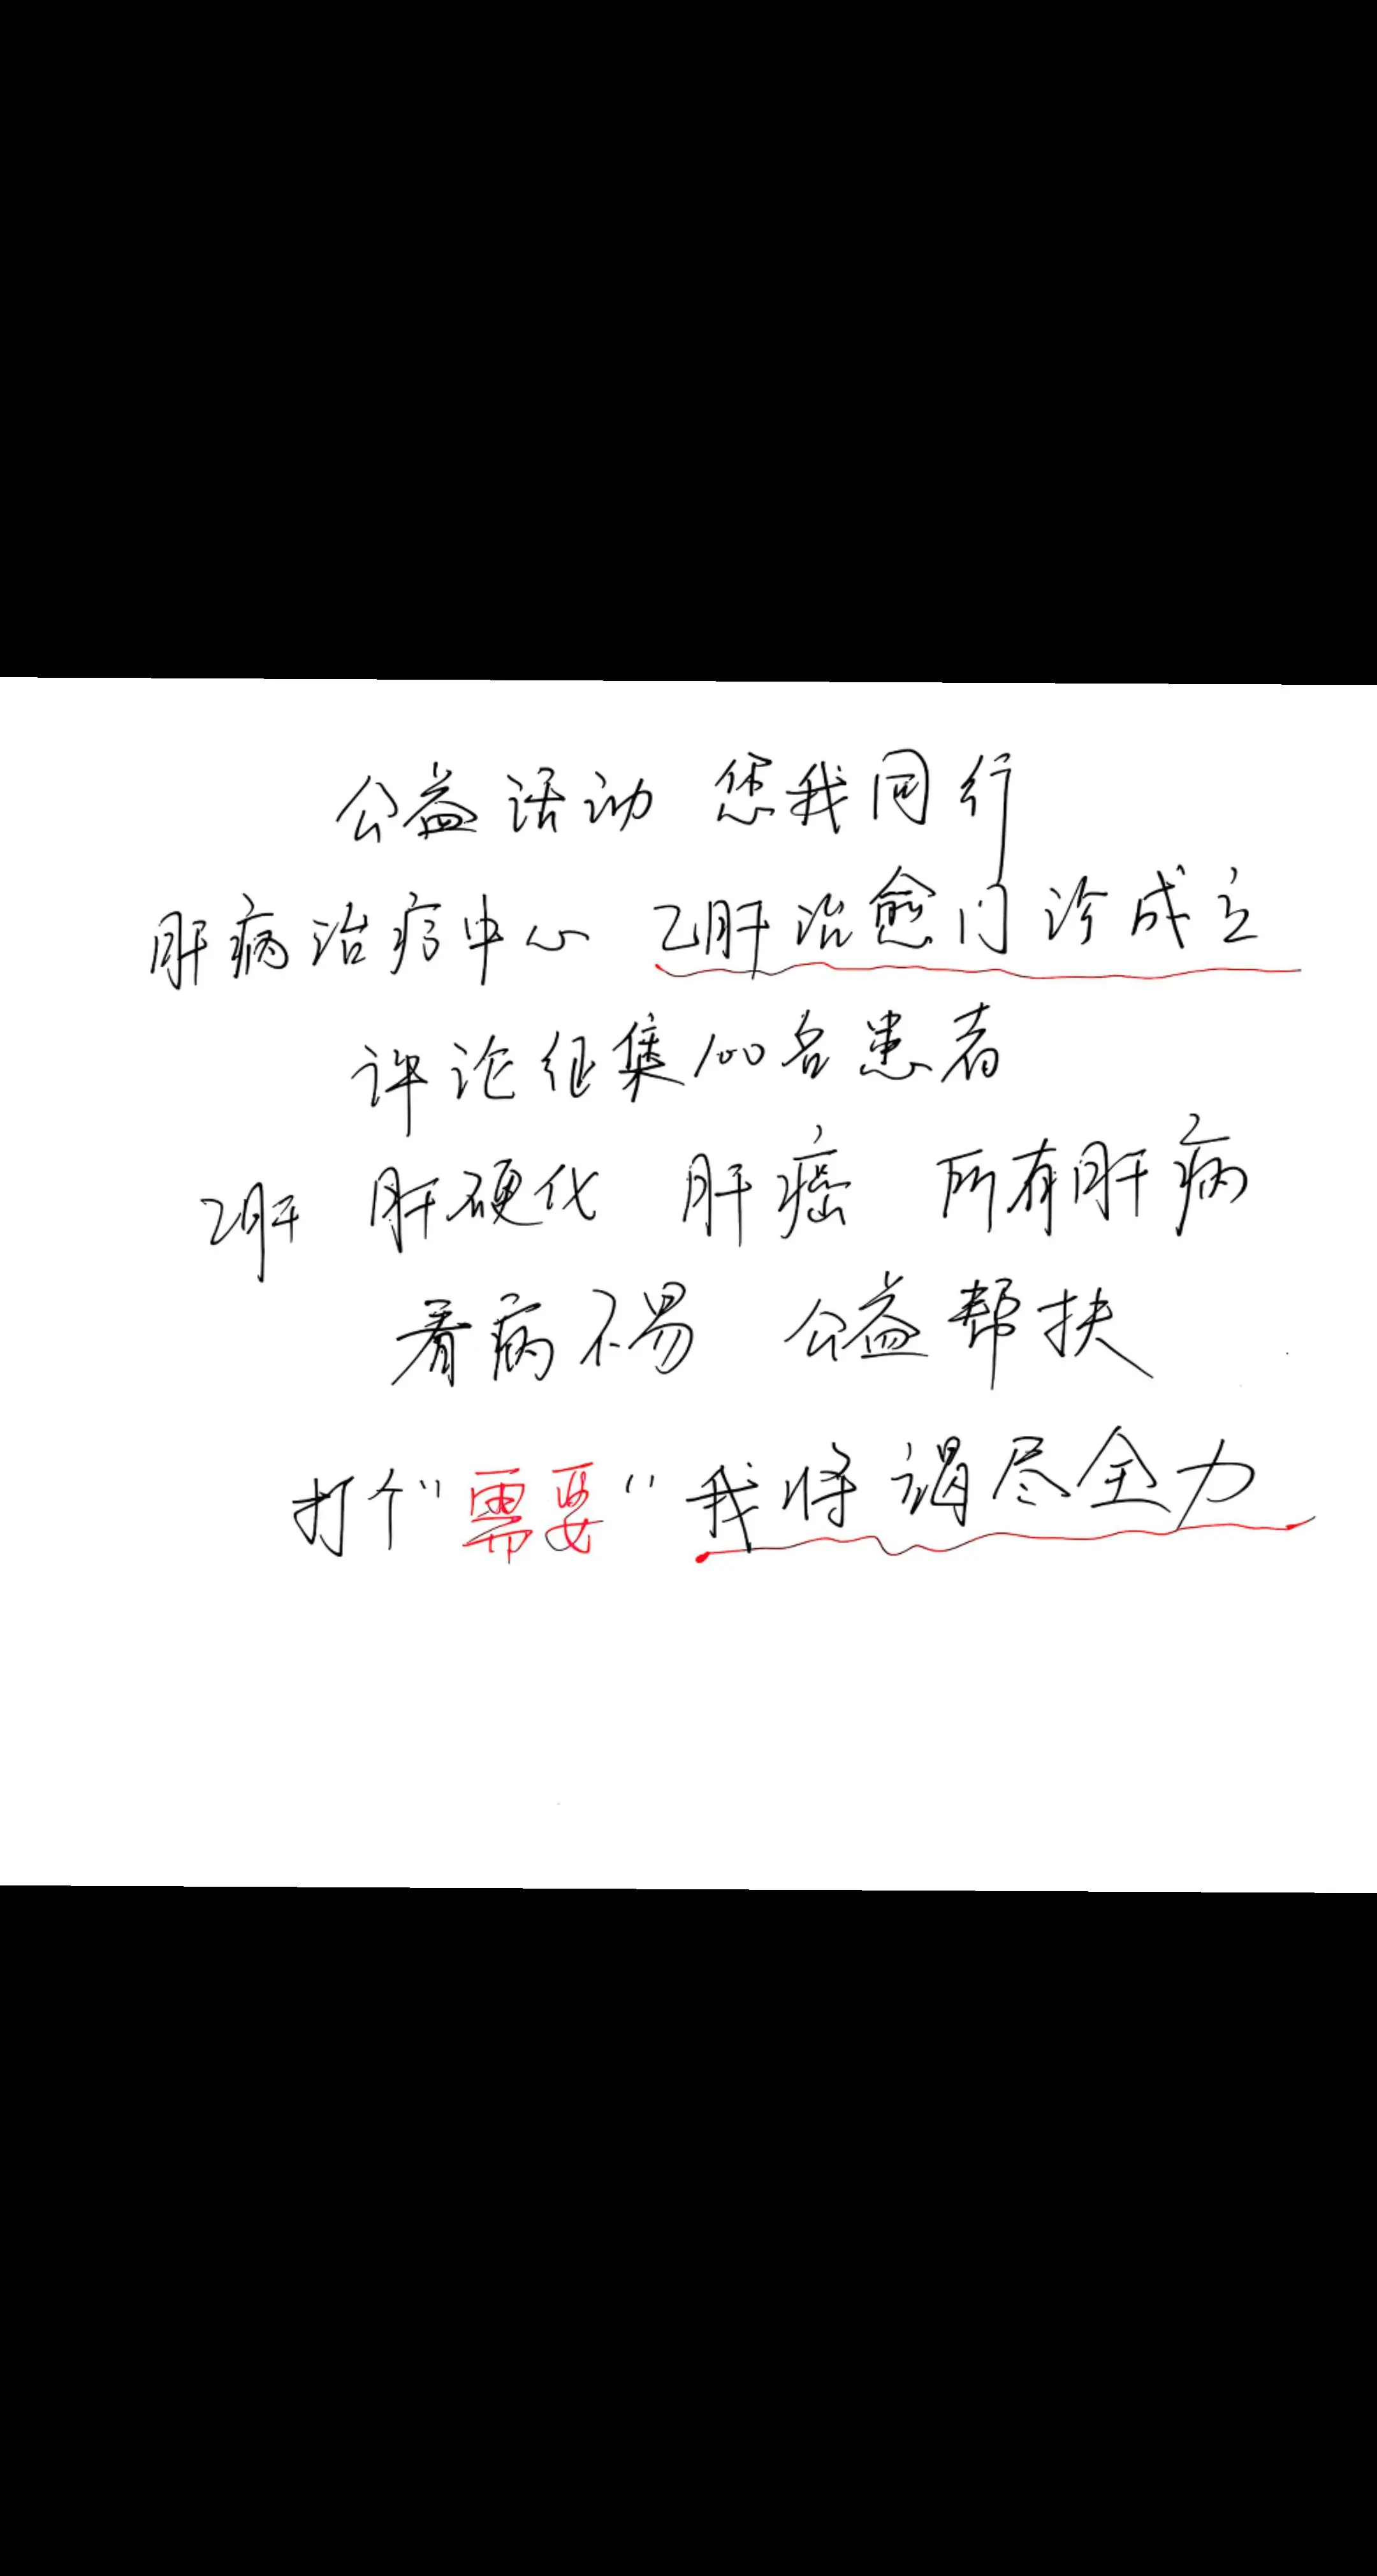 公益活动 您我同行
肝病治疗中心 乙肝治愈门诊成立
评论征集100名患者
乙肝 肝硬化 肝癌 所有肝病
看病不易 公益帮扶
打个“需要”我将谒尽全力